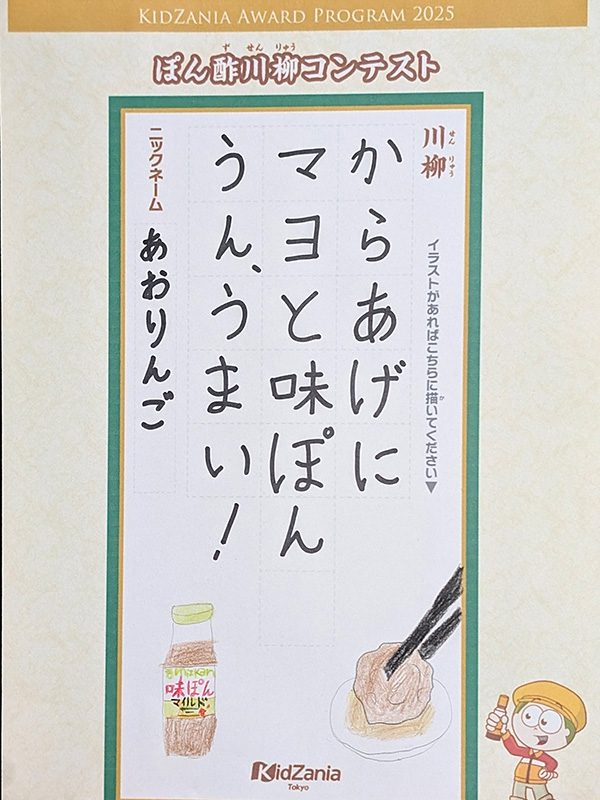 KIDZANIA AWARD PROGRAM 2025
ぽん酢川柳コンテスト
川柳
イラストがあればこちらに描いてください▼
からあげに
マヨと味ぽん
うん、うまい！
ニックネーム
あおりんご
mizkan
味ぽん
マイルド
KidZania
Tokyo